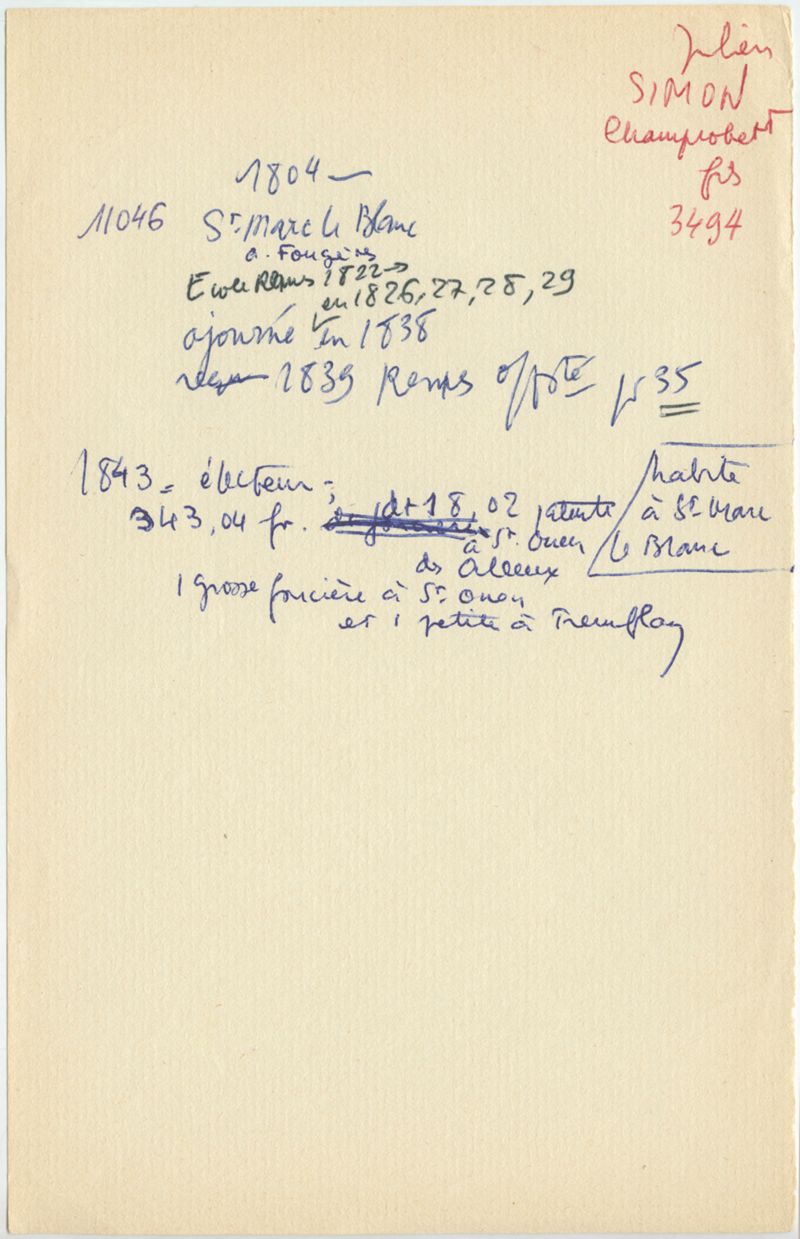 Julien
SIMON
Champrobert
fils
3494
1804 —
11046 St. Marc le Blanc
a. Fougères
Ecole Rennes 1822 →
en 1826, 27, 28, 29
ajourné en 1838
reçu 1839 Rennes offté pr 35
1843 = électeur ;
343,04 fr. dt 18,02 patente
à St. Ouen
des Alleux
habite
à St Marc
le Blanc
1 grosse foncière à St. Ouen
et 1 petite à Tremblay